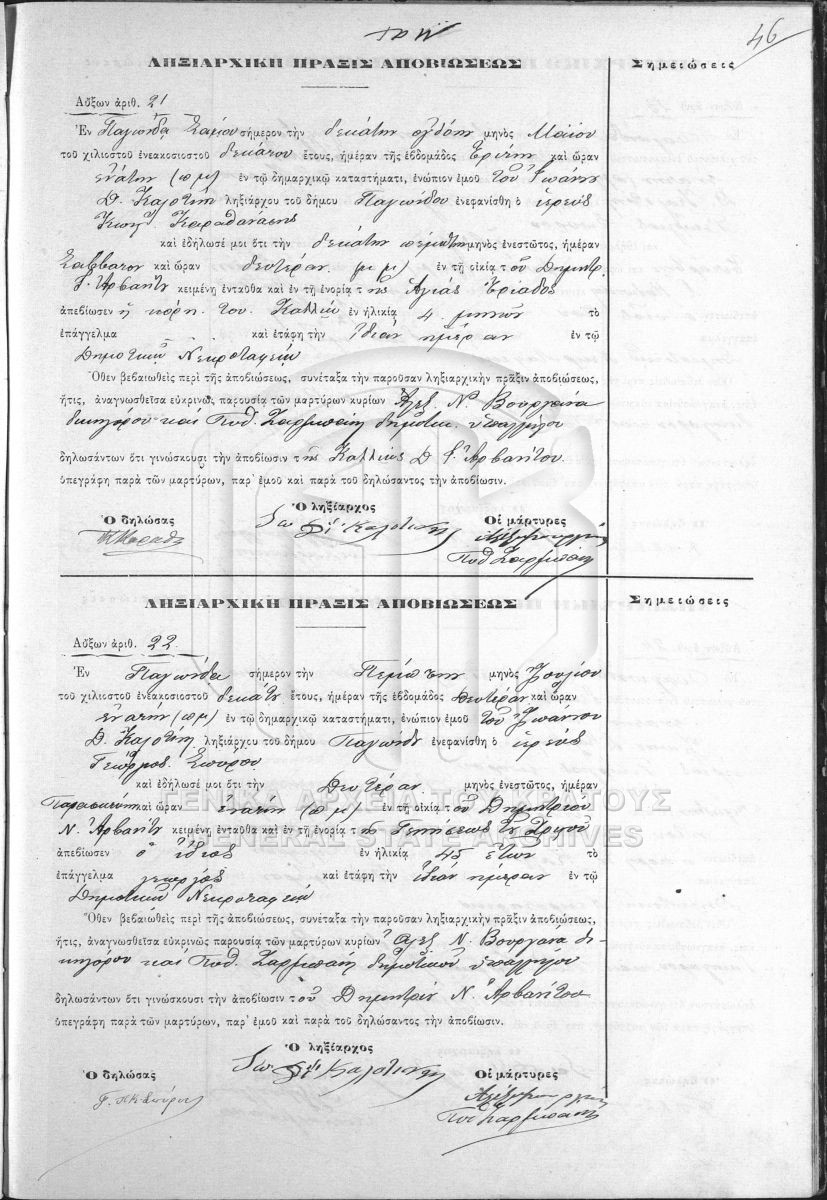 46
ΛΗΞΙΑΡΧΙΚΗ ΠΡΑΞΙΣ ΑΠΟΒΙΩΣΕΩΣ
Σημειώσεις
Αὔξων ἀριθ. 21
Ἐν Παγώνδᾳ Σάμου σήμερον τὴν δεκάτην ὀγδόην μηνὸς Μαΐου
τοῦ χιλιοστοῦ ἐνεακοσιοστοῦ δεκάτου ἔτους, ἡμέραν τῆς ἑβδομάδος Τρίτην καὶ ὥραν
ἐνάτην (π μ) ἐν τῷ δημαρχικῷ καταστήματι, ἐνώπιον ἐμοῦ τοῦ Ἰωάννου
Δ. Καλοτίνη ληξιάρχου τοῦ δήμου Παγώνδου ἐνεφανίσθη ὁ ἱερεὺς
Καραθανάσης
καὶ ἐδήλωσέ μοι ὅτι τὴν δεκάτην πέμπτην μηνὸς ἐνεστῶτος, ἡμέραν
Σάββατον καὶ ὥραν δευτέραν (μ μ) ἐν τῇ οἰκίᾳ τοῦ Δημητρ
Ἀρβανίτ κειμένῃ ἐνταῦθα καὶ ἐν τῇ ἐνορίᾳ τῆς Ἁγίας Τριάδος
ἀπεβίωσεν ἡ κόρη του Καλλιὼ ἐν ἡλικίᾳ 4 μηνῶν τὸ
ἐπάγγελμα καὶ ἐτάφη τὴν ἰδίαν ἡμέραν ἐν τῷ
Δημοτικῷ Νεκροταφείῳ
Ὅθεν βεβαιωθεὶς περὶ τῆς ἀποβιώσεως, συνέταξα τὴν παροῦσαν ληξιαρχικὴν πρᾶξιν ἀποβιώσεως,
ἥτις, ἀναγνωσθεῖσα εὐκρινῶς παρουσίᾳ τῶν μαρτύρων κυρίων Ἀλεξ. Ν. Βουργιάνα
δικηγόρου καὶ Πυθ. Ζαρμπάνη δημοτικ. ὑπαλλήλου
δηλωσάντων ὅτι γινώσκουσι τὴν ἀποβίωσιν τῆς Καλλιῶς Δ. Ἀρβανίτου
ὑπεγράφη παρὰ τῶν μαρτύρων, παρ' ἐμοῦ καὶ παρὰ τοῦ δηλώσαντος τὴν ἀποβίωσιν.
Ὁ δηλώσας
Ὁ ληξίαρχος
Οἱ μάρτυρες
Ἰω Δ. Καλοτίνης
Πυθ. Ζαρμπάνης
ΛΗΞΙΑΡΧΙΚΗ ΠΡΑΞΙΣ ΑΠΟΒΙΩΣΕΩΣ
Σημειώσεις
Αὔξων ἀριθ. 22
Ἐν Παγώνδᾳ σήμερον τὴν Πέμπτην μηνὸς Ἰουλίου
τοῦ χιλιοστοῦ ἐνεακοσιοστοῦ δεκάτου ἔτους, ἡμέραν τῆς ἑβδομάδος Δευτέραν καὶ ὥραν
ἐνάτην (π μ) ἐν τῷ δημαρχικῷ καταστήματι, ἐνώπιον ἐμοῦ τοῦ Ἰωάννου
Δ. Καλοτίνη ληξιάρχου τοῦ δήμου Παγώνδου ἐνεφανίσθη ὁ ἱερεὺς
Γεώργιος Σπύρου
καὶ ἐδήλωσέ μοι ὅτι τὴν Δευτέραν μηνὸς ἐνεστῶτος, ἡμέραν
Παρασκευὴν καὶ ὥραν ἐνάτην (π μ) ἐν τῇ οἰκίᾳ τοῦ Δημητρίου
Ν. Ἀρβανίτ κειμένῃ ἐνταῦθα καὶ ἐν τῇ ἐνορίᾳ τῆς Γεννήσεως τοῦ Χριστοῦ
ἀπεβίωσεν ὁ ἴδιος ἐν ἡλικίᾳ 45 ἐτῶν τὸ
ἐπάγγελμα γεωργὸς καὶ ἐτάφη τὴν ἰδίαν ἡμέραν ἐν τῷ
Δημοτικῷ Νεκροταφείῳ
Ὅθεν βεβαιωθεὶς περὶ τῆς ἀποβιώσεως, συνέταξα τὴν παροῦσαν ληξιαρχικὴν πρᾶξιν ἀποβιώσεως,
ἥτις, ἀναγνωσθεῖσα εὐκρινῶς παρουσίᾳ τῶν μαρτύρων κυρίων Ἀλεξ. Ν. Βουργιάνα δι-
κηγόρου καὶ Πυθ. Ζαρμπάνη δημοτικοῦ ὑπαλλήλου
δηλωσάντων ὅτι γινώσκουσι τὴν ἀποβίωσιν τοῦ Δημητρίου Ν. Ἀρβανίτου
ὑπεγράφη παρὰ τῶν μαρτύρων, παρ' ἐμοῦ καὶ παρὰ τοῦ δηλώσαντος τὴν ἀποβίωσιν.
Ὁ ληξίαρχος
Ὁ δηλώσας
Οἱ μάρτυρες
Ἰω Δ. Καλοτίνης
Πυθ. Ζαρμπάνης
ΓΕΝΙΚΑ ΑΡΧΕΙΑ ΤΟΥ ΚΡΑΤΟΥΣ
GENERAL STATE ARCHIVES